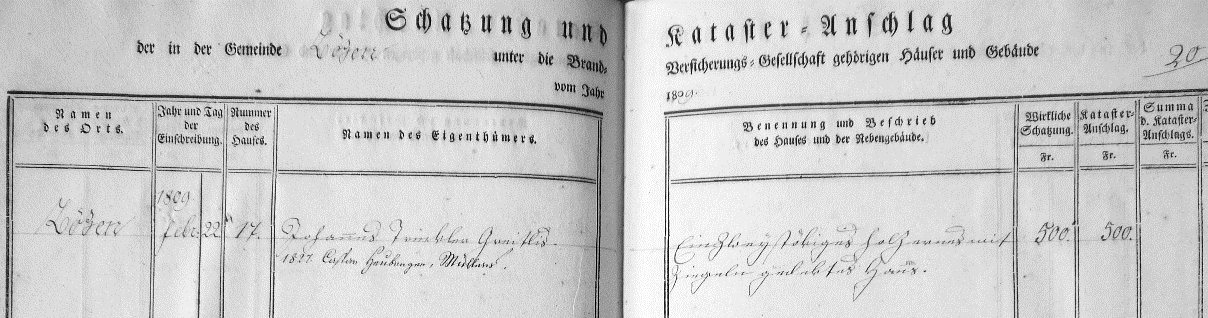 Schatzung und Kataster-Anschlag
der in der Gemeinde Bözen unter die Brand-Versicherungs-Gesellschaft gehörigen Häuser und Gebäude
20
vom Jahr 1809.
Namen des Orts.
Jahr und Tag der Einschreibung.
Nummer des Hauses.
Namen des Eigenthümers.
Benennung und Beschrieb des Hauses und der Nebengebäude.
Wirkliche Schatzung.
Kataster-Anschlag.
Summa d. Kataster-Anschlags.
Fr.
Fr.
Fr.
1809
Bözen Febr. 22 17. Johannes
Ein Zweystökiges holzernes mit 500. 500.
1827.
Ziegeln gedektes Haus.